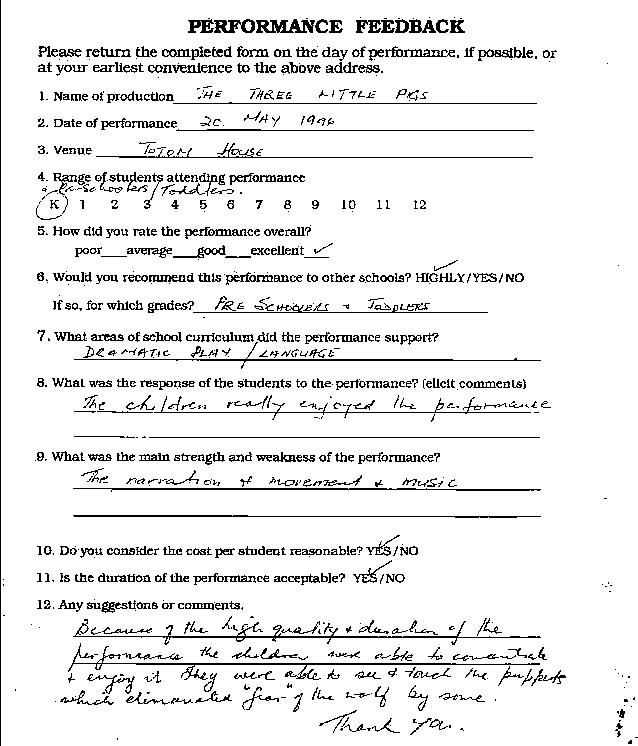 PERFORMANCE FEEDBACK
Please return the completed form on the day of performance, if possible, or
at your earliest convenience to the above address.
1. Name of production THE THREE LITTLE PIGS
2. Date of performance 20 MAY 1996
3. Venue TOTOM HOUSE
4. Range of students attending performance
& Pre-Schoolers/Toddlers.
K 1 2 3 4 5 6 7 8 9 10 11 12
5. How did you rate the performance overall?
poor___average___good___excellent ✓
6. Would you recommend this performance to other schools? HIGHLY/YES/NO
If so, for which grades? PRE SCHOOLERS & TODDLERS
7. What areas of school curriculum did the performance support?
DRAMATIC PLAY / LANGUAGE
8. What was the response of the students to the performance? (elicit comments)
The children really enjoyed the performance
9. What was the main strength and weakness of the performance?
The narration & movement & music
10. Do you consider the cost per student reasonable? YES/NO
11. Is the duration of the performance acceptable? YES/NO
12. Any suggestions or comments.
Because of the high quality & duration of the
performance the children were able to concentrate
& enjoy it They were able to see & touch the puppets
which eliminated "fear" of the wolf by some.
Thank You.